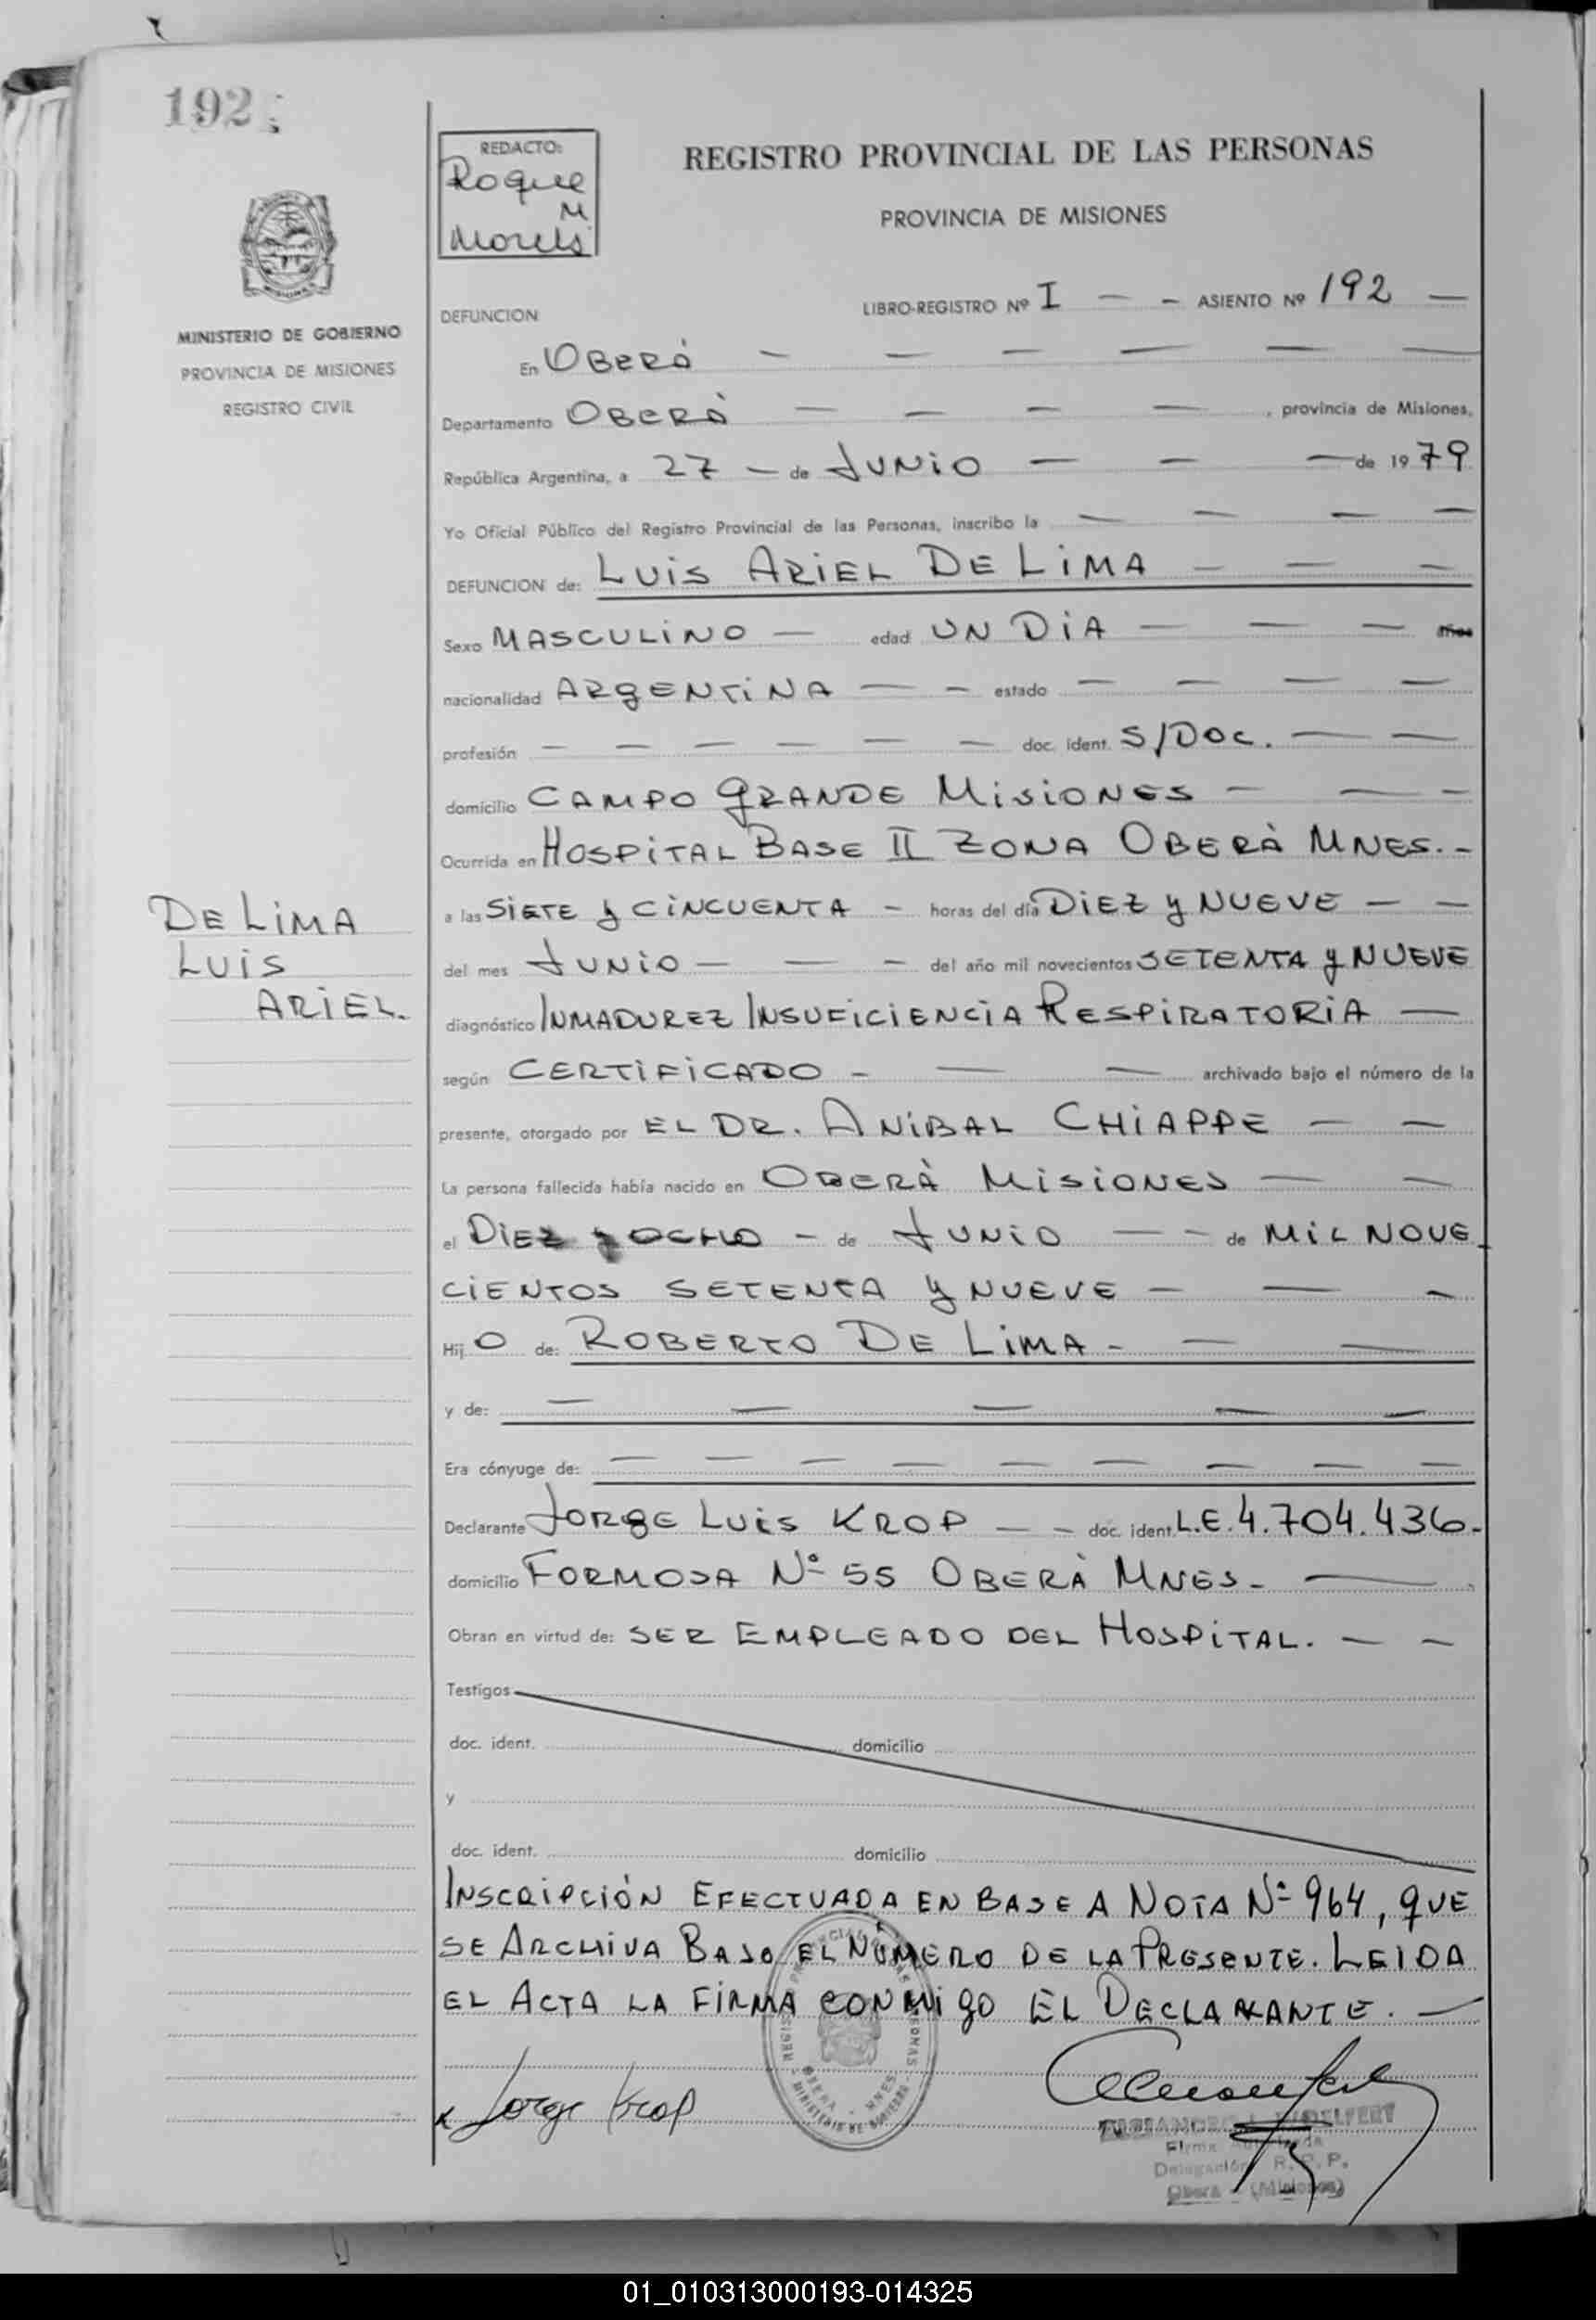 192
REDACTO:
Roque
M
REGISTRO PROVINCIAL DE LAS PERSONAS
PROVINCIA DE MISIONES
MINISTERIO DE GOBIERNO
PROVINCIA DE MISIONES
REGISTRO CIVIL
LIBRO-REGISTRO Nº I — — ASIENTO Nº 192 —
DEFUNCION
En OBERÁ — — — — — —
Departamento OBERÁ — — — — , provincia de Misiones,
República Argentina, a 27 — de JUNIO — — — de 1979
Yo Oficial Público del Registro Provincial de las Personas, inscribo la — — — —
DEFUNCION de: LUIS ARIEL DE LIMA — — —
Sexo MASCULINO — edad UN DIA — — — años
nacionalidad ARGENTINA — — estado — — — —
profesión — — — — — — doc. ident. S/DOC. — —
domicilio CAMPO GRANDE MISIONES — — —
Ocurrida en HOSPITAL BASE II ZONA OBERÀ MNES. -
a las SIETE y CINCUENTA — horas del día DIEZ y NUEVE — —
del mes JUNIO — — — del año mil novecientos SETENTA y NUEVE
diagnóstico INMADUREZ INSUFICIENCIA RESPIRATORIA —
según CERTIFICADO — — — archivado bajo el número de la
presente, otorgado por EL DR. ANIBAL CHIAPPE — —
La persona fallecida había nacido en OBERÀ MISIONES — —
el DIEZ y OCHO — de JUNIO — — de MIL NOVE
CIENTOS SETENTA y NUEVE — — —
Hij O de: ROBERTO DE LIMA — — —
y de: — — — — —
Era cónyuge de: — — — — — — — — —
Declarante JORGE LUIS KROP — — doc. ident. L.E. 4.704.436.
domicilio FORMOSA Nº 55 OBERÀ MNES. —
Obran en virtud de: SER EMPLEADO DEL HOSPITAL. — —
Testigos
doc. ident. domicilio
y
doc. ident. domicilio
INSCRIPCIÓN EFECTUADA EN BASE A NOTA Nº 964, QUE
SE ARCHIVA BAJO EL NÚMERO DE LA PRESENTE. LEIDA
EL ACTA LA FIRMA CONMIGO EL DECLARANTE. —
Jorge Krop
Firma Autorizada
Delegación R. P. P.
Oberá - (Misiones)
DE LIMA
LUIS
ARIEL.
01_010313000193-014325